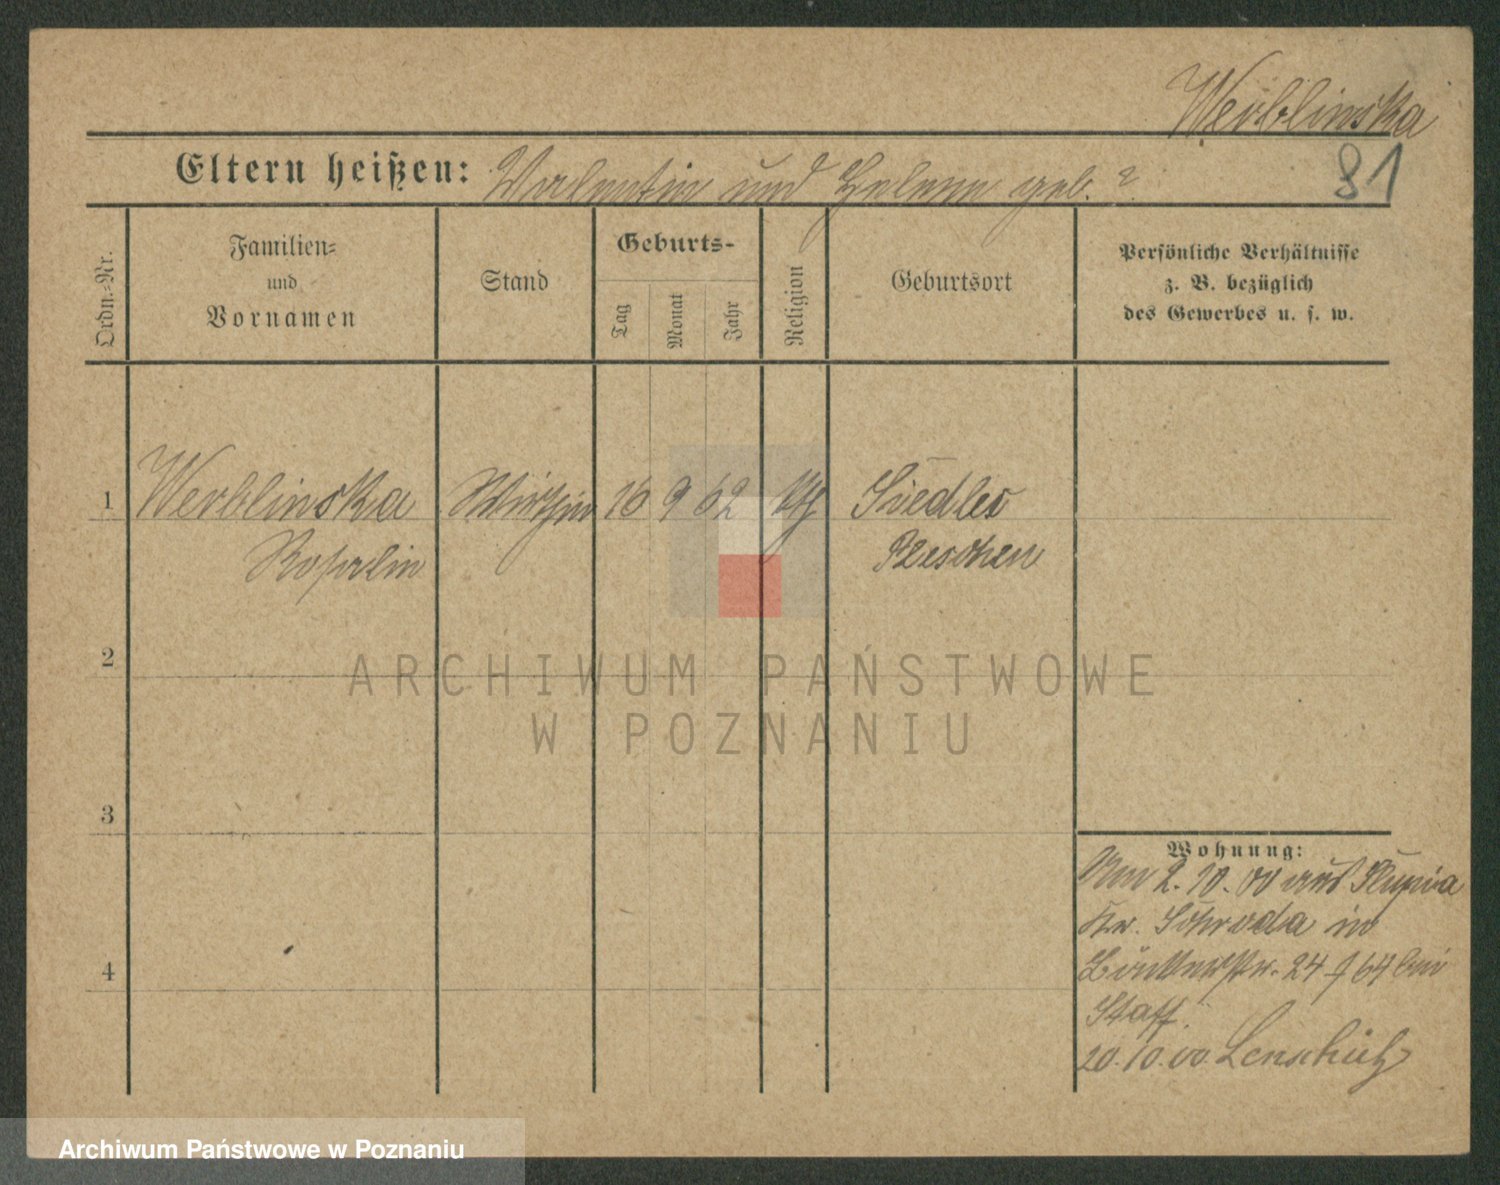 Werblinska
81
Eltern heißen: Valentin und Helene geb. ?
Ordn.-Nr.
Familien-
und
Vornamen
Stand
Geburts-
Tag
Monat
Jahr
Religion
Geburtsort
Persönliche Verhältnisse
z. B. bezüglich
des Gewerbes u. s. w.
1 Werblinska Wirthin 16 9 62 Siedlec
Rosalie Pleschen
2
ARCHIWUM PAŃSTWOWE
W POZNANIU
3
4
Wohnung:
Am 2. 10. 00 aus Slupia
Kr. Schroda in
24 f 64 bei
Staff.
20.10.00.
Archiwum Państwowe w Poznaniu